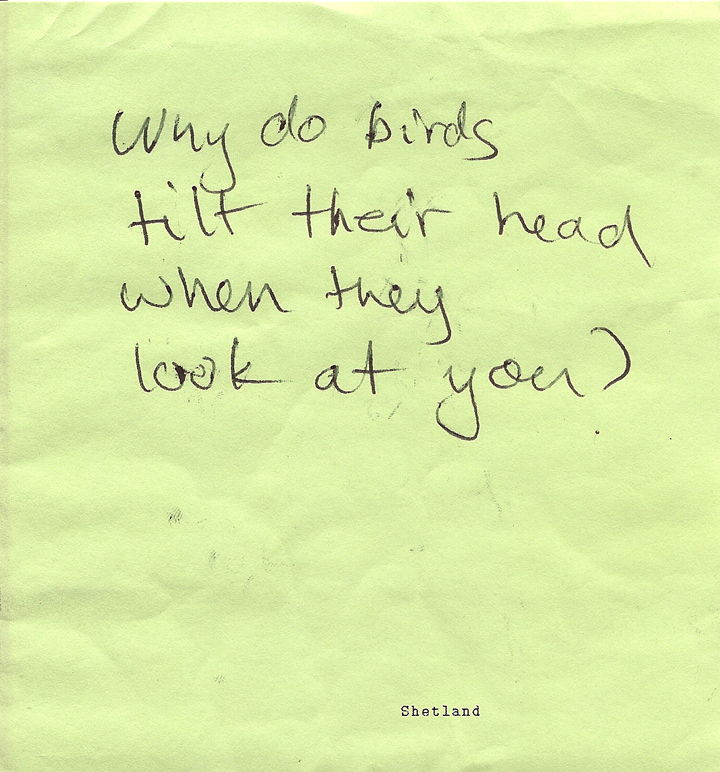 Why do birds
tilt their head
when they
look at you?
Shetland